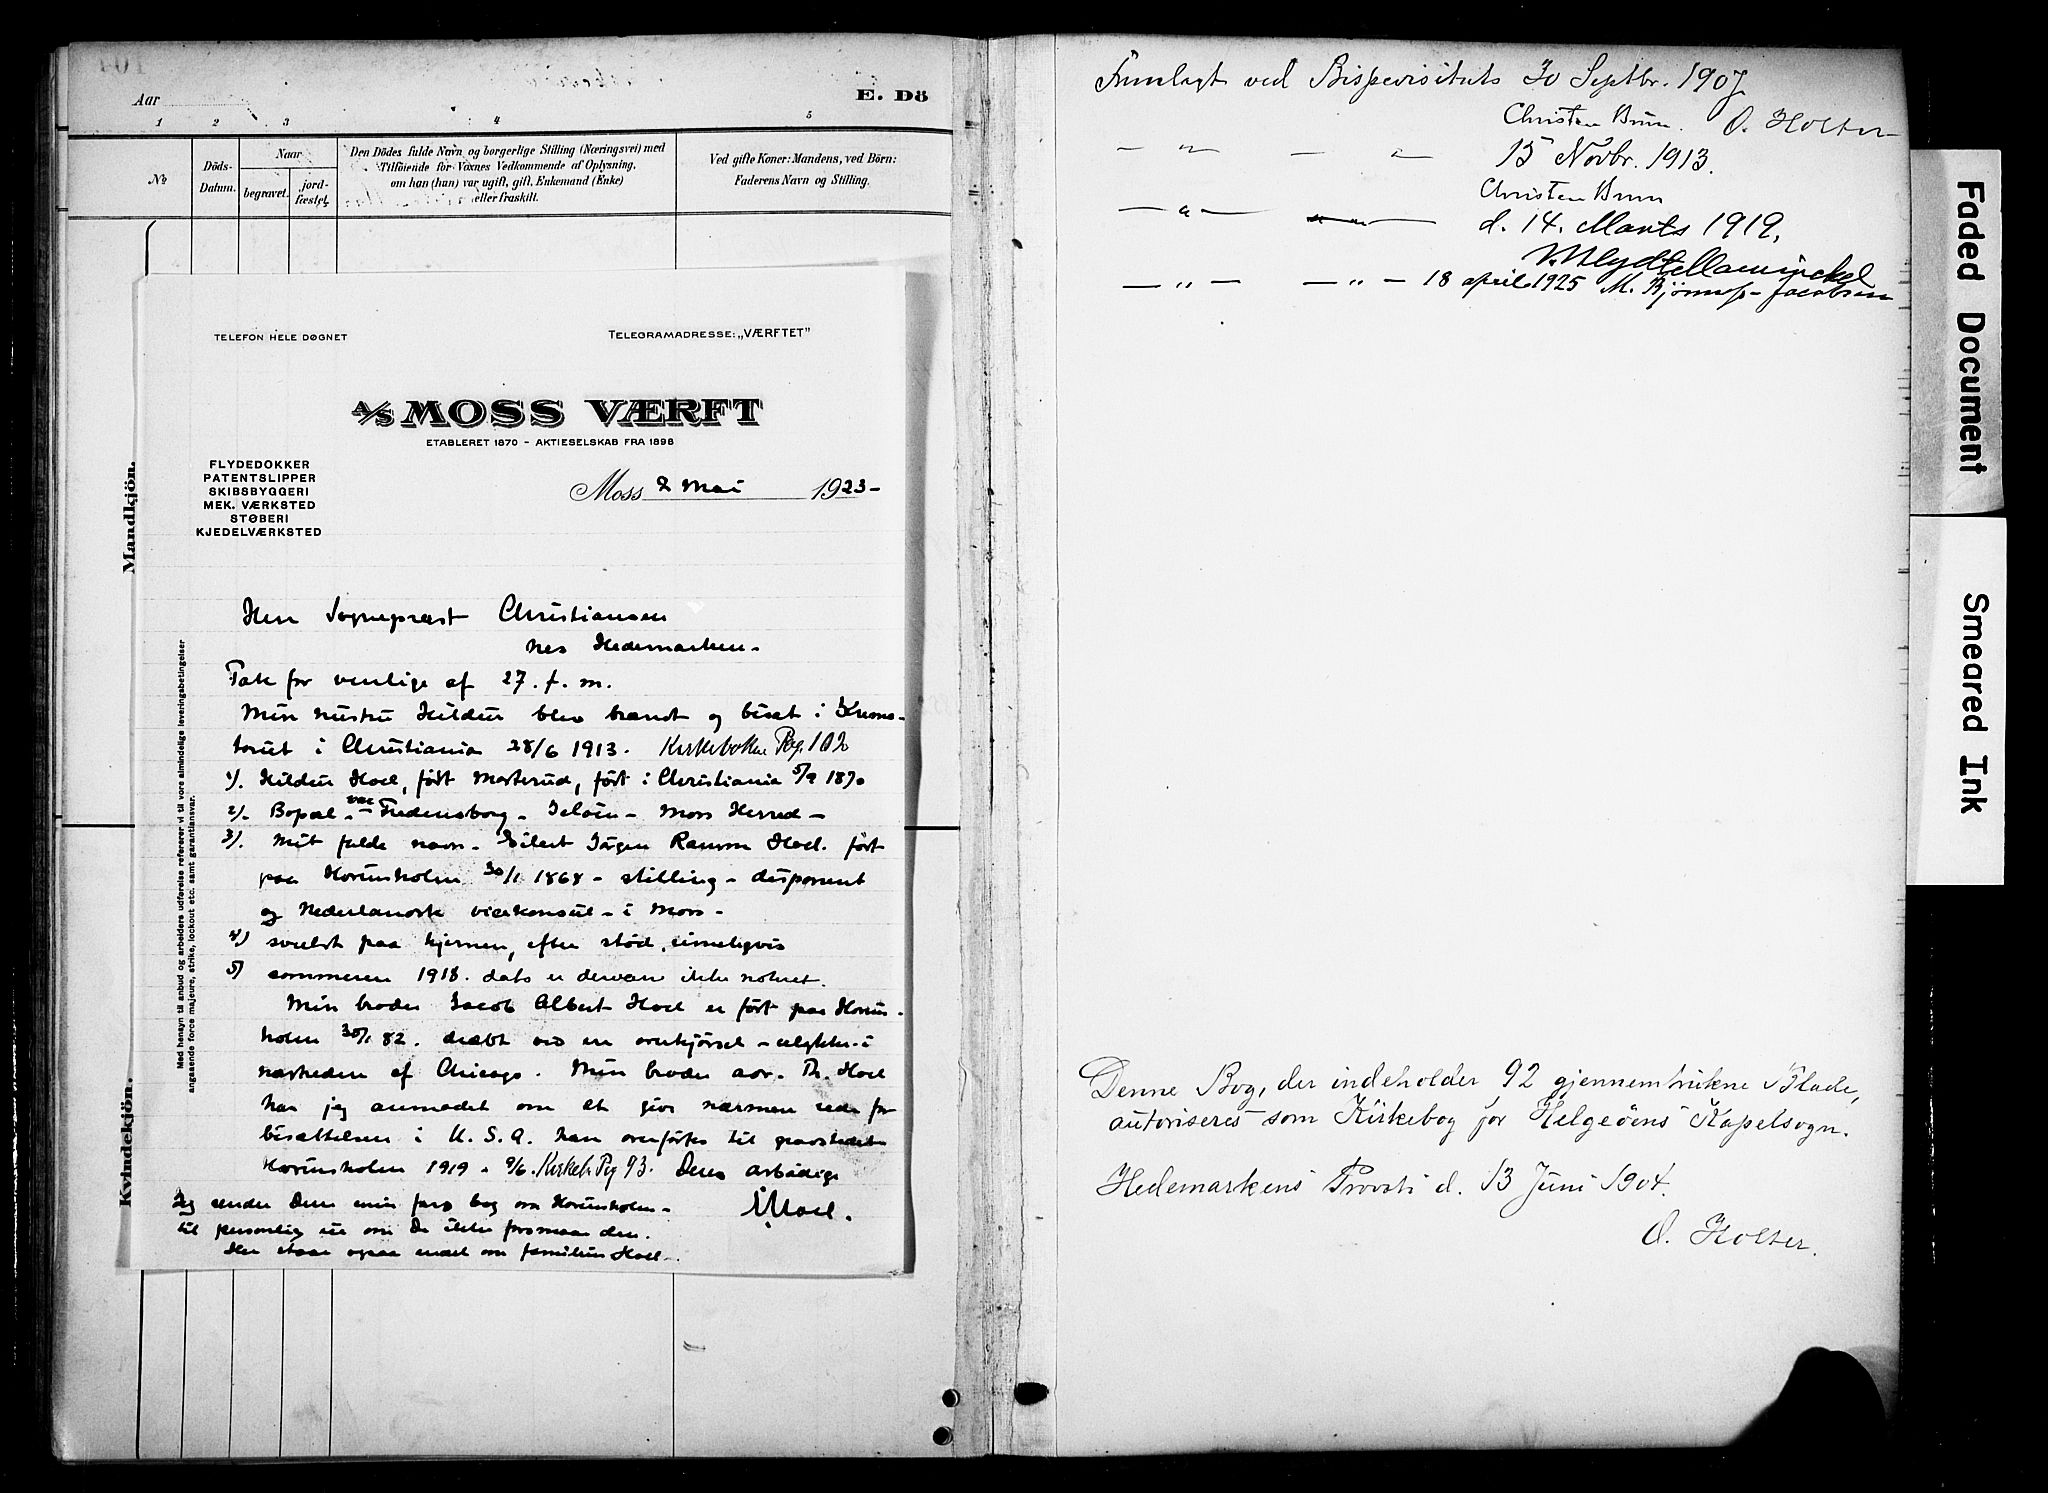 Aar
E. Dö
1 2 3 4 5
No
Döds-
Datum.
Naar
begravet.
jord-
fæstet.
Den Dödes fulde Navn og borgerlige Stilling (Næringsvei) med
Tilföiende for Voxnes Vedkommende af Oplysning,
om han (hun) var ugift, gift, Enkemand (Enke)
eller fraskilt.
Ved gifte Koner: Mandens, ved Börn:
Faderens Navn og Stilling.
Mandkjön.
Kvindekjön.
TELEFON HELE DØGNET
TELEGRAMADRESSE: „VÆRFTET"
A/S MOSS VÆRFT
ETABLERET 1870 - AKTIESELSKAB FRA 1898
FLYDEDOKKER
PATENTSLIPPER
SKIBSBYGGERI
MEK. VÆRKSTED
STØBERI
KJEDELVÆRKSTED
Moss 2 Mai 1923-
Med hensyn til anbud og arbeiders udførelse refererer vi til vore almindelige leveringsbetingelser
angaaende force majeure, strike, lockout etc. samt garantiansvar.
Herr Sogneprest Christiansen
Nes Hedemarken-
Tak for venlige af 27. f. m.
Min hustru Hildur blev brændt og bisat i Krema-
toriet i Christiania 28/6 1913. Kirkeboken Pag. 102
1). Hildur Hoel, født Marterud, født i Christiania 5/9 1870
2)- Bopæl - var Fredensborg - Jeløen - Moss Herred -
3). Mit fulde navn - Eilert Jørgen Ramm Hoel. født
paa Hovinsholm 30/1 1868 - stilling - disponent
og Nederlandsk vicekonsul - i Moss -
4) svulst paa hjernen, efter stød, rimeligvis
5) sommeren 1918. dato er derværre ikke noteret.
Min broder Jacob Albert Hoel er født paa Hovins-
holm 30/1 82. dræbt ved en overkjørsel - ulykke - i
nærheden af Chicago. Min broder adv. Th. Hoel
har jeg anmodet om at give nærmere rede for
bisættelsen i U. S. A. han overførtes til gravstedet
Hovinsholm 1919 - 9/6. Kirkeb. Pag 93. Deres arbødige
Jeg sender Dem min fars bog om Hovinsholm -
Hoel.
til personlig eie om De ikke forsmaar den.
Her staar ogsaa endel om familien Hoel -.
Fremlagt ved Bispevisitats 30 Septbr. 1907
Christen Brun. O. Holter
— " — — " — 15 Novbr. 1913.
Christen Brun
— " — — " — d. 14. Marts 1919.
— " — — " — 18 april 1925 M. Bjønnes-Jacobsen
Denne Bog, der indeholder 92 gjennemtrukne Blade,
autoriseres som Kirkebog for Helgeöens Kapelsogn.
Hedemarkens Provsti d. 13 Juni 1904.
O. Holter.
Faded Document
Smeared Ink